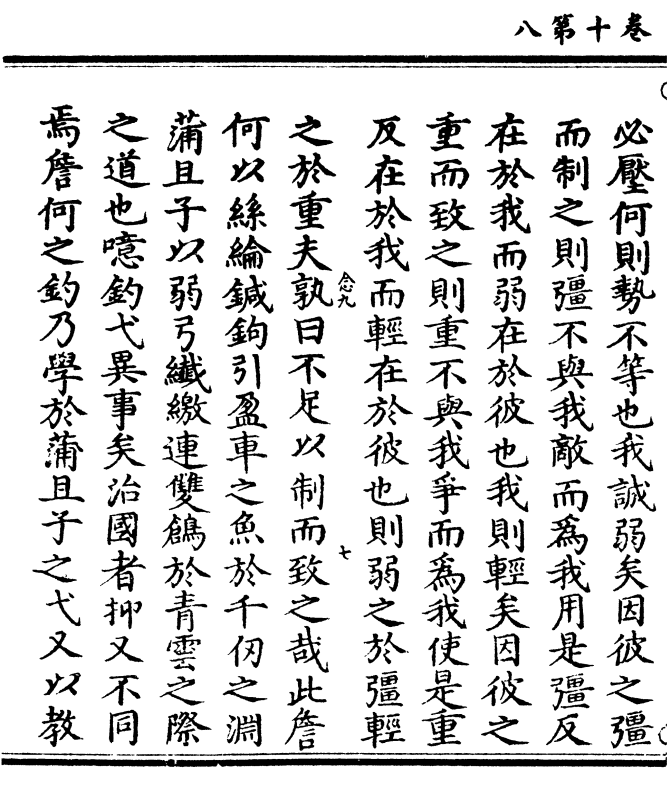 卷十第八
必壓何則勢不等也我誠弱矣因彼之彊
而制之則彊不與我敵而爲我用是彊反
在於我而弱在於彼也我則輕矣因彼之
重而致之則重不與我爭而爲我使是重
反在於我而輕在於彼也則弱之於彊輕
念九
七
之於重夫孰曰不足以制而致之哉此詹
何以絲綸鍼鉤引盈車之魚於千仞之淵
蒲且子以弱弓纖繳連雙鶬於青雲之際
之道也噫釣弋異事矣治國者抑又不同
焉詹何之釣乃學於蒲且子之弋又以教